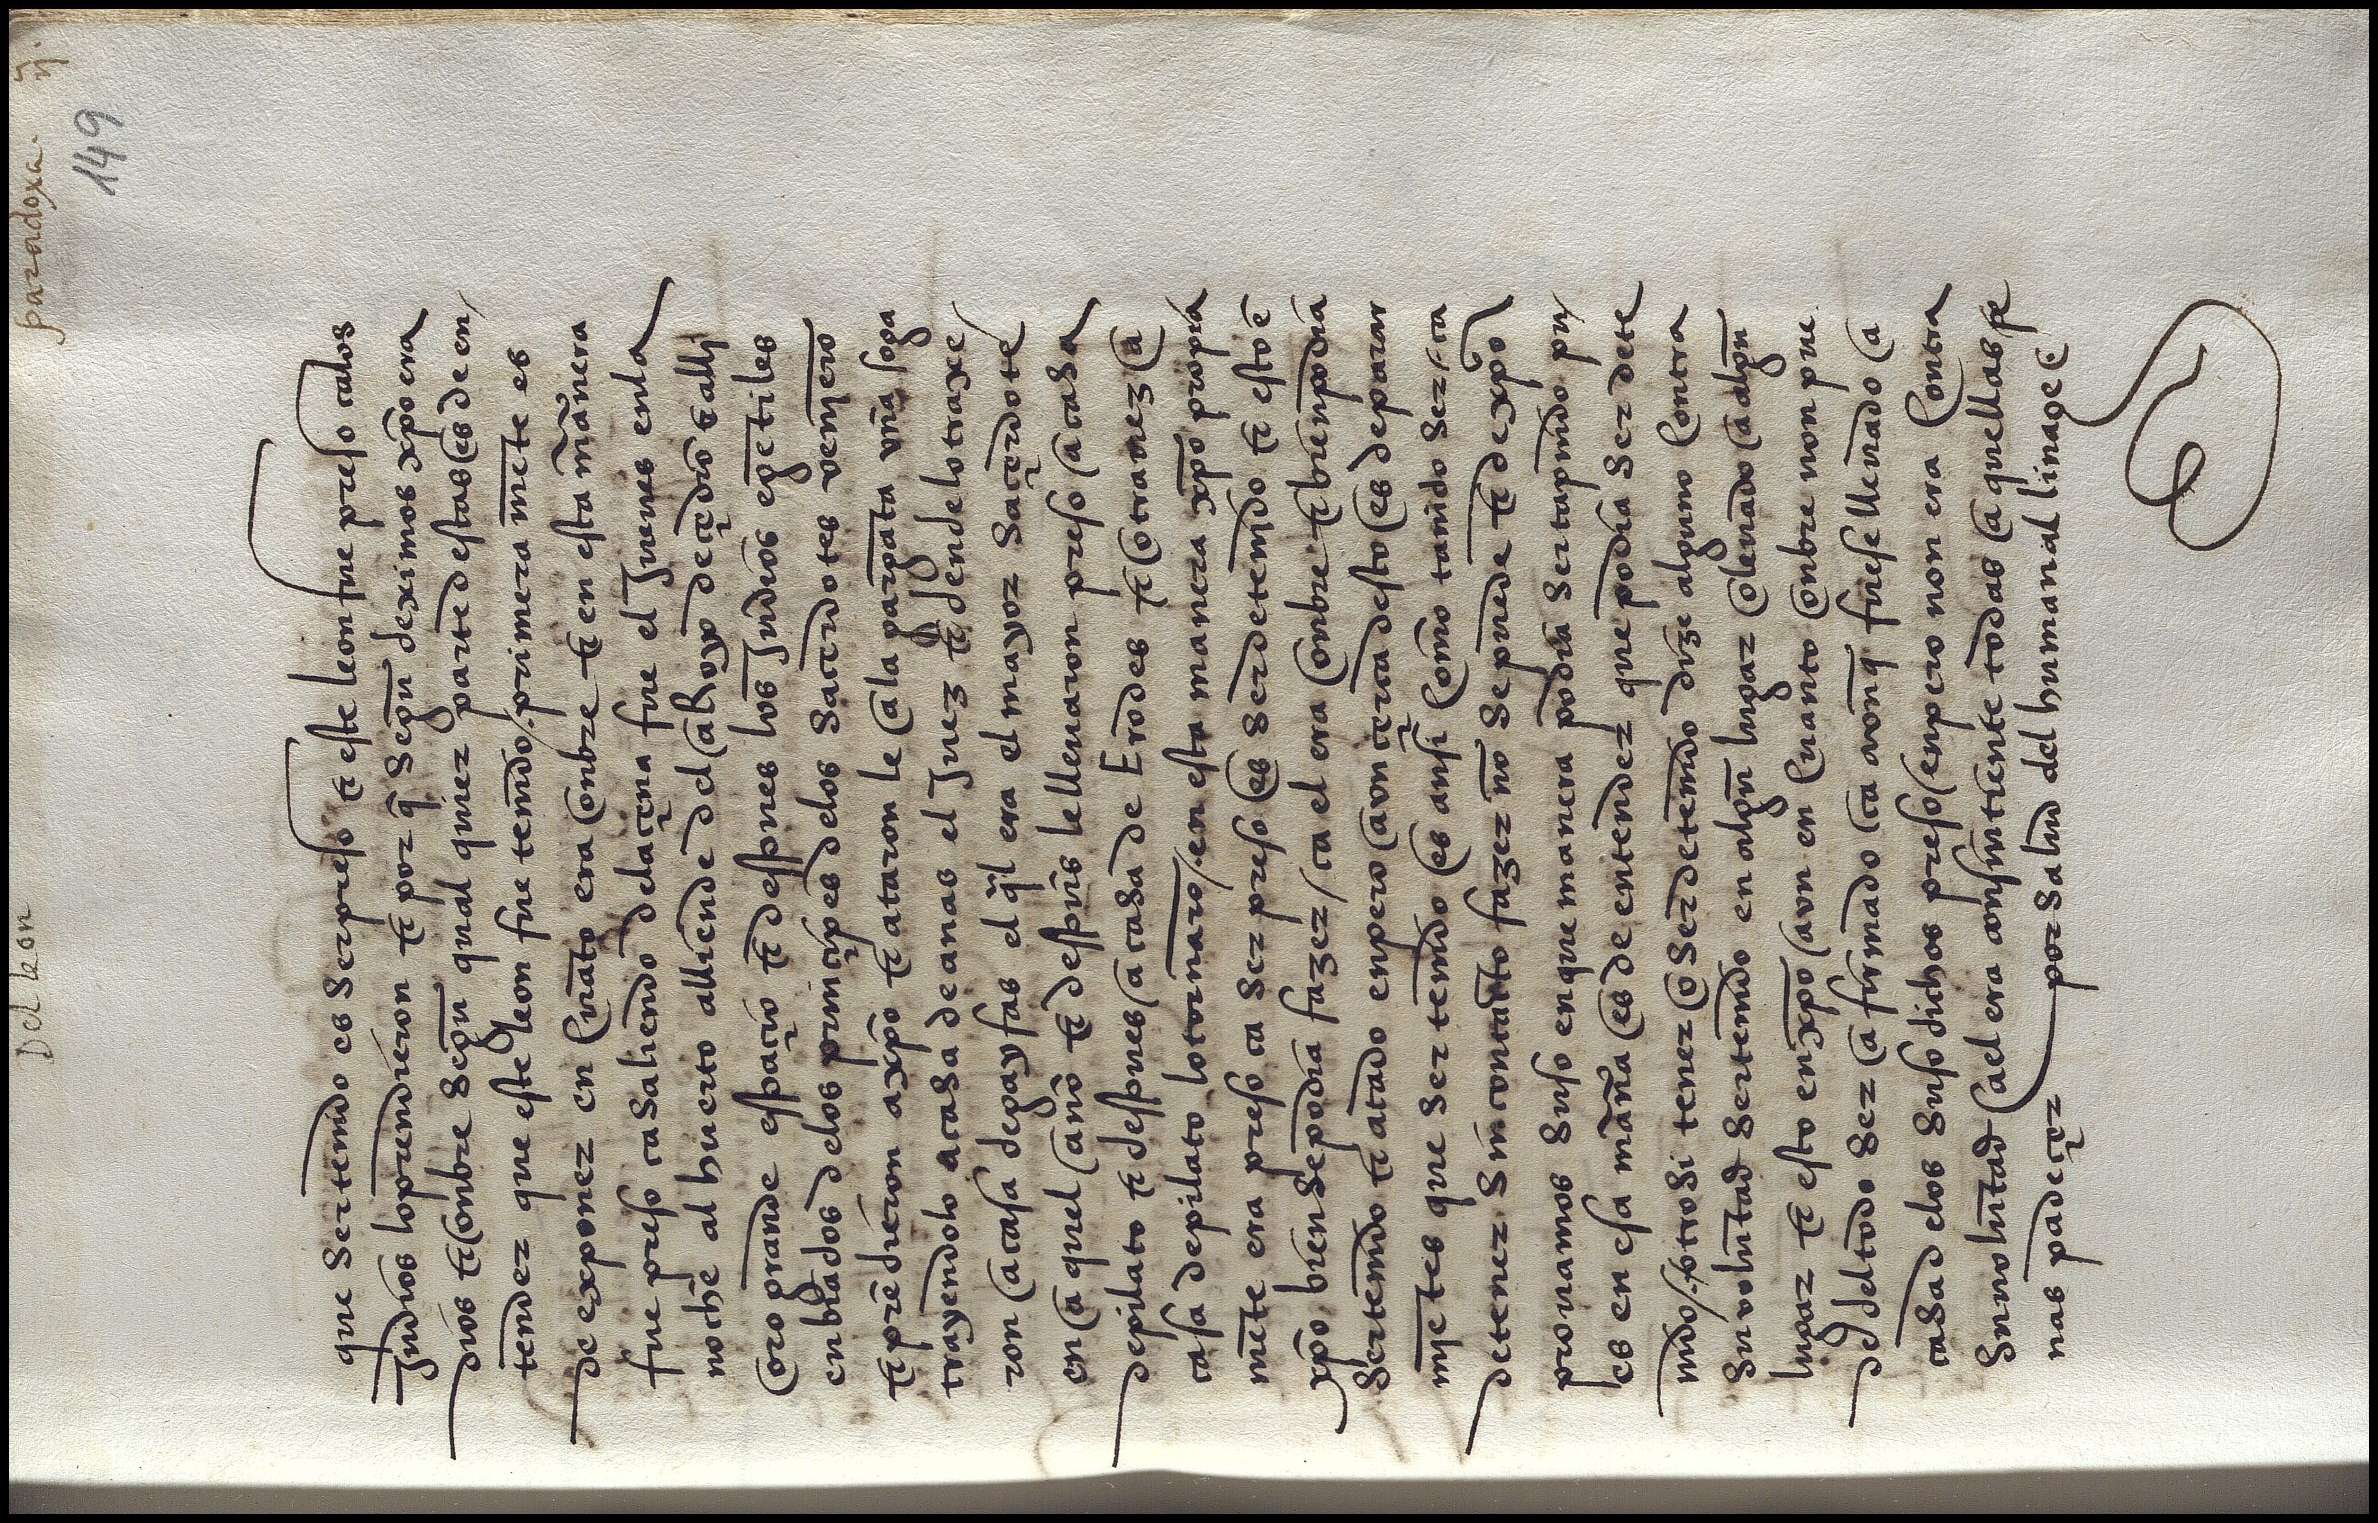 Del leon
paradoxa. ij.
149
que ser tenido es ser preso τ̃ este leon fue preso ca los
Judios lo prendieron τ̃ por q̃ segũn deximos xp̃o era
dios τ̃ onbre segũn qual quier parte destas es de en/
tender que este leon fue tenido/. primera mẽte es
de exponer en cuãto era onbre τ̃ en esta mãnera
fue preso ca saliendo dela çena fue el Jueues en la
noche al huerto alliende del aRoyo de çedrõ τ̃ alli
oro grande espaçio τ̃ despues los Judios egẽtiles
enbiados delos prinçipes delos saçerdotes venierõ
τ̃ prẽdieron a xp̃o τ̃ ataron le ala gargãta vña soga
trayendolo a casa de anas el Juez τ̃ dende lo traxe/
ron a casa de gayfas el q̃l era el mayor saçerdote/
en aquel año τ̃ despũes le lleuaron preso a casa
de pilato τ̃ despues a casa de Erodes τ̃ otra uez a
casa de pilato lo tornarõ/. en esta manera xp̃o propia
mẽte era preso ca ser preso es ser detenido τ̃ esto ẽ
xp̃o bien se podia fazer/ ca el era onbre τ̃ bien podia
ser tenido τ̃ atado enpero avn çerca desto es de parar
miẽtes que ser tenido es ansi comõ tañido ser/. ca
detener sin contãto fazer nõ se puede τ̃ de xp̃o
prouamos suso en que manera podia ser tapnido pu/
es en esa mãña es de entender que podia ser dete
nido/. otrosi tener o ser detenido dize alguno contra
su volũntad ser tenido en algũn lugar o leuado a algũn
lugar τ̃ esto en xp̃o avn en cuanto onbre non pue
de del todo ser afirmado ca avõnq̃ fuese lleuado a
casa delos suso dichos preso enpero non era contra
su volũntad ca el era consintiente todas aquellas pe
nas padeçer por salud del humanal linage